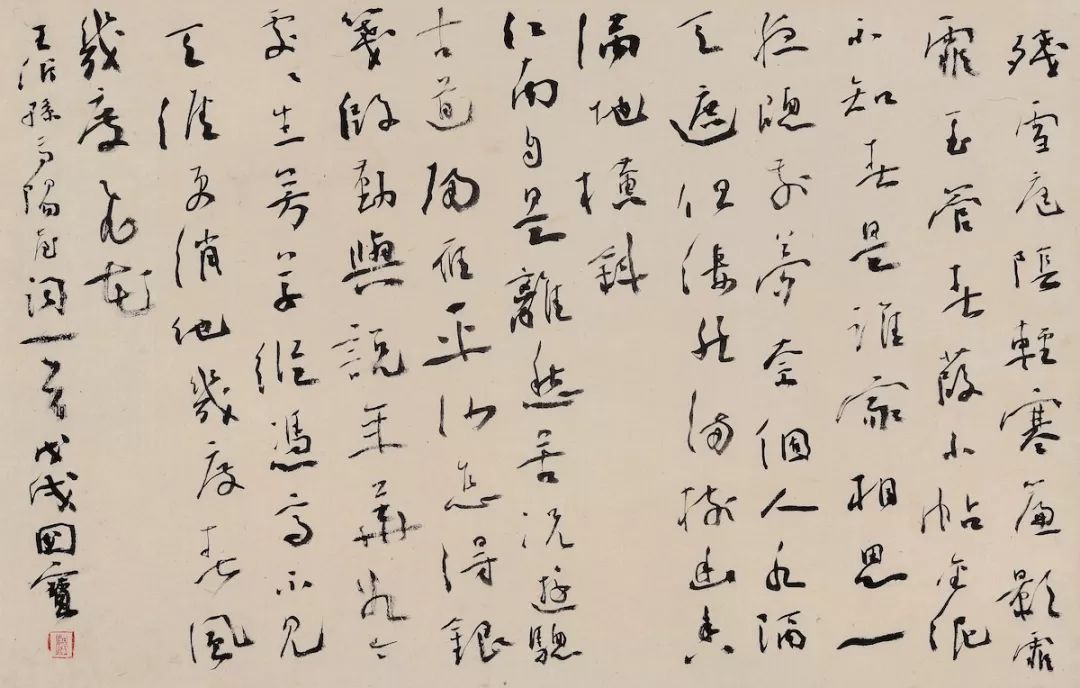 殘雪庭陰輕寒簾影霏
霏玉管春葭小帖金泥
不知春是誰家相思一
夜牕前夢奈個人水隔
天遮但凄然滿樹幽香
滿地橫斜
江南自是離愁苦況遊驄
古道歸雁平沙怎得銀
箋殷勤與說年華如今
處〻生芳草縱憑高不見
天涯更消他幾度春風
幾度飛花
王沂孫高陽臺詞一首戊戌國寶